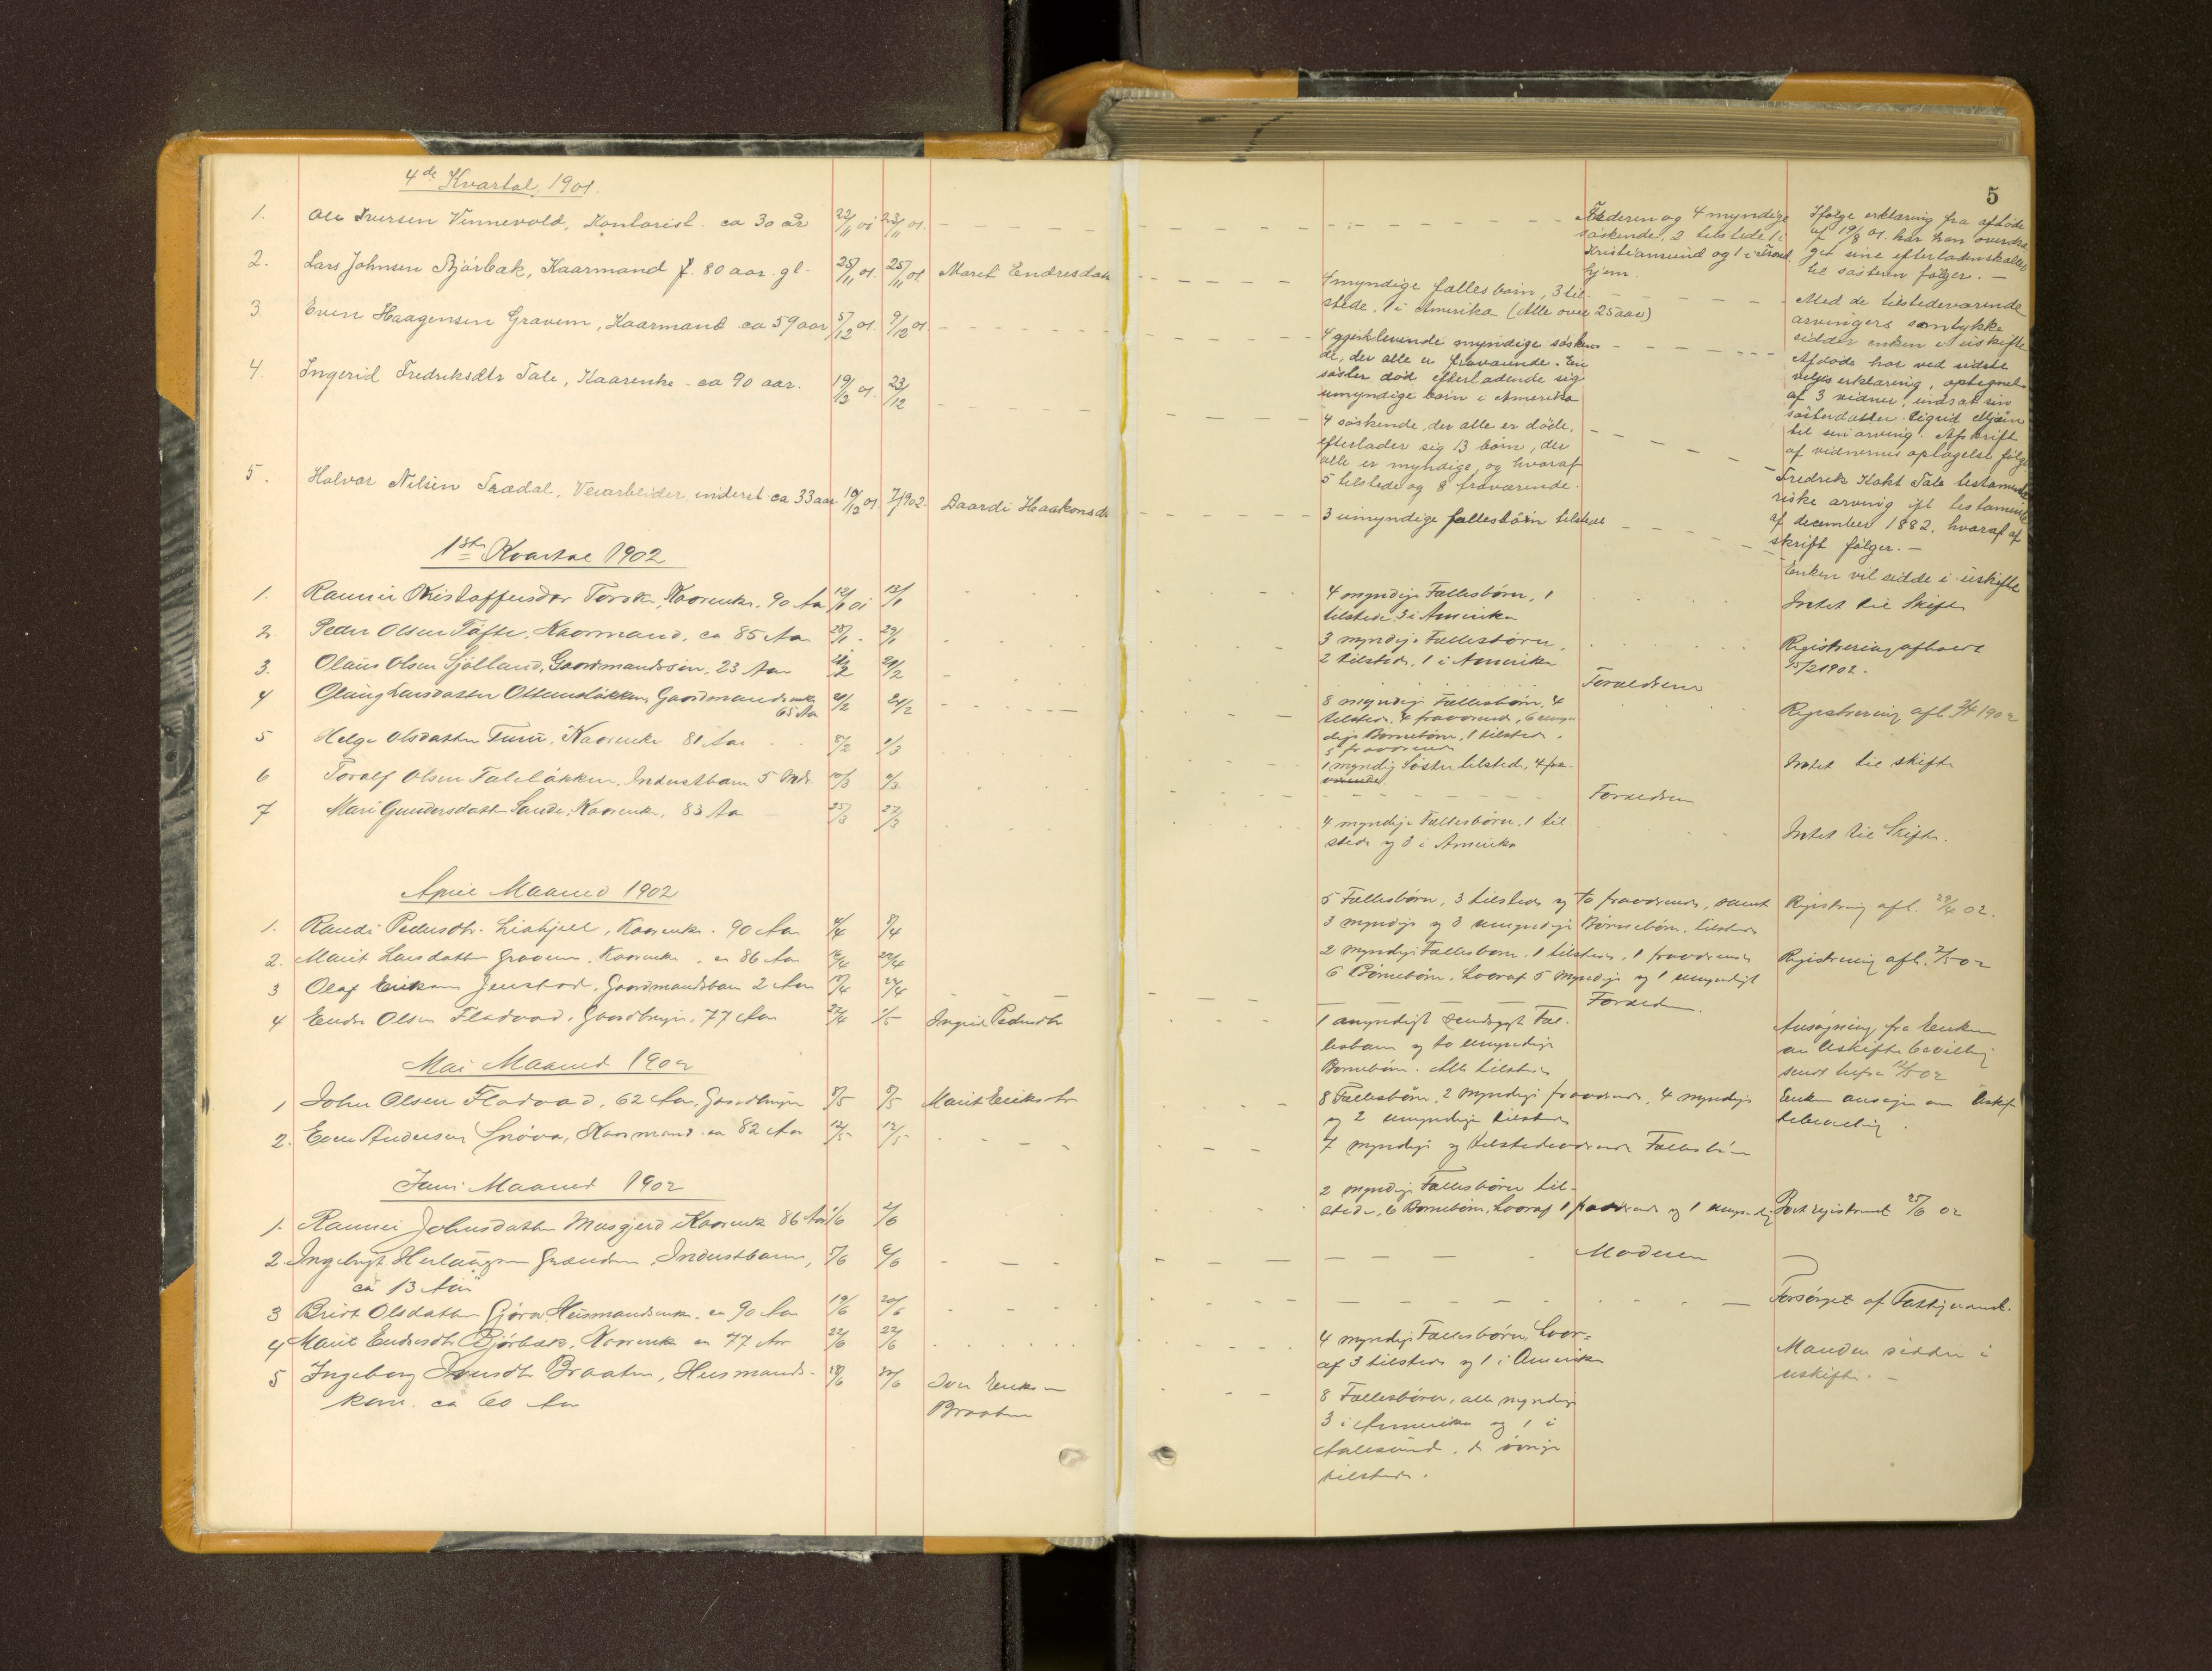 5
4de Kvartal 1901.
1. Ole Iversen Vinnevold, Kontorist. ca 30 år 22/11 01 23/11 01. Faderen og 4 myndige Ifølge erklæring fra afdøde
søskende, 2 tilstede 1 i af 19/8 01. har han overdra
Kristiansund og 1 i Trond get sine efterladenskaber
hjem. til søsteren følger. —
2. Lars Johnsen Bjørbæk, Kaarmand f. 80 aar gl. 25/11 01. 25/11 01 Marit Endresdatt 4 myndige fælles barn, 3 til
stede, 1 i Amerika (Alle over 25 aar) Med de tilstedeværende
arvingers samtykke
sidder enken i uskifte
3 Even Haagensen Gravem, Kaarmand ca 59 aar 5/12 01. 9/12 01. 4 gjenlevende myndige søsken
de, der alle er fraværende. En
søster død efterladende sig
umyndige børn i Amerika Afdøde har ved sidste
viljes erklæring, optegnet
af 3 vidner, indsat sin
søsterdatter Sigrid Mjøen
til sin arving. Afskrift
af vidnernes optagelse følge
4. Ingerid Fredriksdtr Tale, Kaarenke - ca 90 aar. 19/12 01. 23/12 4 søskende, der alle er døde,
efterlader sig 13 børn, der
alle er myndige, og hvoraf
5 tilstede og 8 fraværende. Fredrik Tale testamenta
riske arving ifl testamente
af december 1882, hvoraf af
skrift følger. —
5. Halvor Nilsen Trædal, Veiarbeider, inderst ca 33 aar 19/12 01. 7/1 902. Baardi Haakonsdt 3 umyndige fællesbørn tilstede Enken vil sidde i uskifte
1ste Kvartal 1902
1. Rannei Kristoffersdtr Torske, Kaarenke, 90 Aar 12/1 01 13/1 4 myndige Fællesbørn, 1
tilstede 3 i Amerika Intet til Skifte
2. Peder Olsen Tøfte, Kaarmand, ca 85 Aar 28/1 29/1 3 myndige Fællesbørn,
2 tilstede, 1 i Amerika Registrering afholdt
15/2 1902.
3. Olaus Olsen Sjølland, Gaardmandssøn, 23 Aar 20/2 Forældrene
4 Olaug Larsdatter Ottemsløkken, Gaardmandsenke
65 Aar 21/2 8 myndige Fællesbørn, 4
tilstede, 4 fraværende, 6 umyn
dige Børnebørn, 1 tilstede,
5 fraværende Registrering afh. 2/4 1902
5 Helge Olsdatter Furu, Kaarenke 81 Aar 8/3 1 myndig Søster tilstede, 4 fra-
værende Intet til skifte
6 Toralf Olsen Taleløkken, Inderstbarn 5 Mdr 10/3 Forældrene
7 Mari Gundersdatter Sande, Kaarenke, 83 Aar 25/3 27/3 4 myndige Fællesbørn, 1 til
stede og 3 i Amerika Intet til Skifte.
April Maaned 1902
1. Randi Pedersdtr. Liahjell, Kaarenke. 90 Aar 4/4 8/4 5 Fællesbørn, 3 tilstede og to fraværende, samt
3 myndige og 3 umyndige Børnebørn, tilstede Registrering afh. 29/4 02.
2. Marit Larsdatter Gravem, Kaarenke, ca 86 Aar 22/4 2 myndige Fællesbørn, 1 tilstede, 1 fraværende
6 Børnebørn, hvoraf 5 myndige og 1 umyndigt Registrering afh. 2/5 02
3 Olaf Eriksen Jenstad, Gaardmandsbarn 2 Aar 18/4 24/4 Forældrene
4 Endre Olsen Fladvad, Gaardbruger, 77 Aar 22/4 1/5 Ingrid Pedersdtr 1 umyndigt Fæl-
lesbarn og to umyndige
Børnebørn. Alle tilstede Ansøgning fra Enken
om Uskifte bevilling
sendt 12/5 02
Mai Maaned 1902
1 John Olsen Fladvad, 62 Aar, Gaardbruger 8/5 9/5 Marit Eriksdtr 8 Fællesbørn, 2 myndige fraværende, 4 myndige
og 2 umyndige tilstede Enken ansøger om Uskif
tebevilling.
2. Even Andersen Snøva, Kaarmand ca 82 Aar 12/5 12/5 7 myndige og tilstedeværende Fællesbørn
Juni Maaned 1902
1. Rannei Johnsdatter Musgjerd Kaarenke 86 Aar 1/6 2/6 2 myndige Fællesbørn til-
stede, 6 Børnebørn, hvoraf 1 fraværende og 1 umyndig Bort registreret 25/6 02
2 Ingebrigt Herlaugsen Grønden, Inderstbarn, 5/6 6/6 Moderen
ca 13 Aar
3 Brit Olsdatter Gjøra Husmandsenke, ca 90 Aar 19/6 20/6 Forsørget af Fattigvæsnet.
4 Marit Endresdtr Bjørbæk, Kaarenke ca 77 Aar 22/6 22/6 4 myndige Fællesbørn, hvor-
af 3 tilstede og 1 i Amerika
5 Ingeborg Iversdtr Braaten, Husmands- 28/6 30/6 Iver Eriksen
kone. ca 60 Aar Braaten
8 Fællesbørn, alle myndige
3 i Amerika og 1 i
Aalesund, de øvrige
tilstede. Manden sidder i
uskifte. —